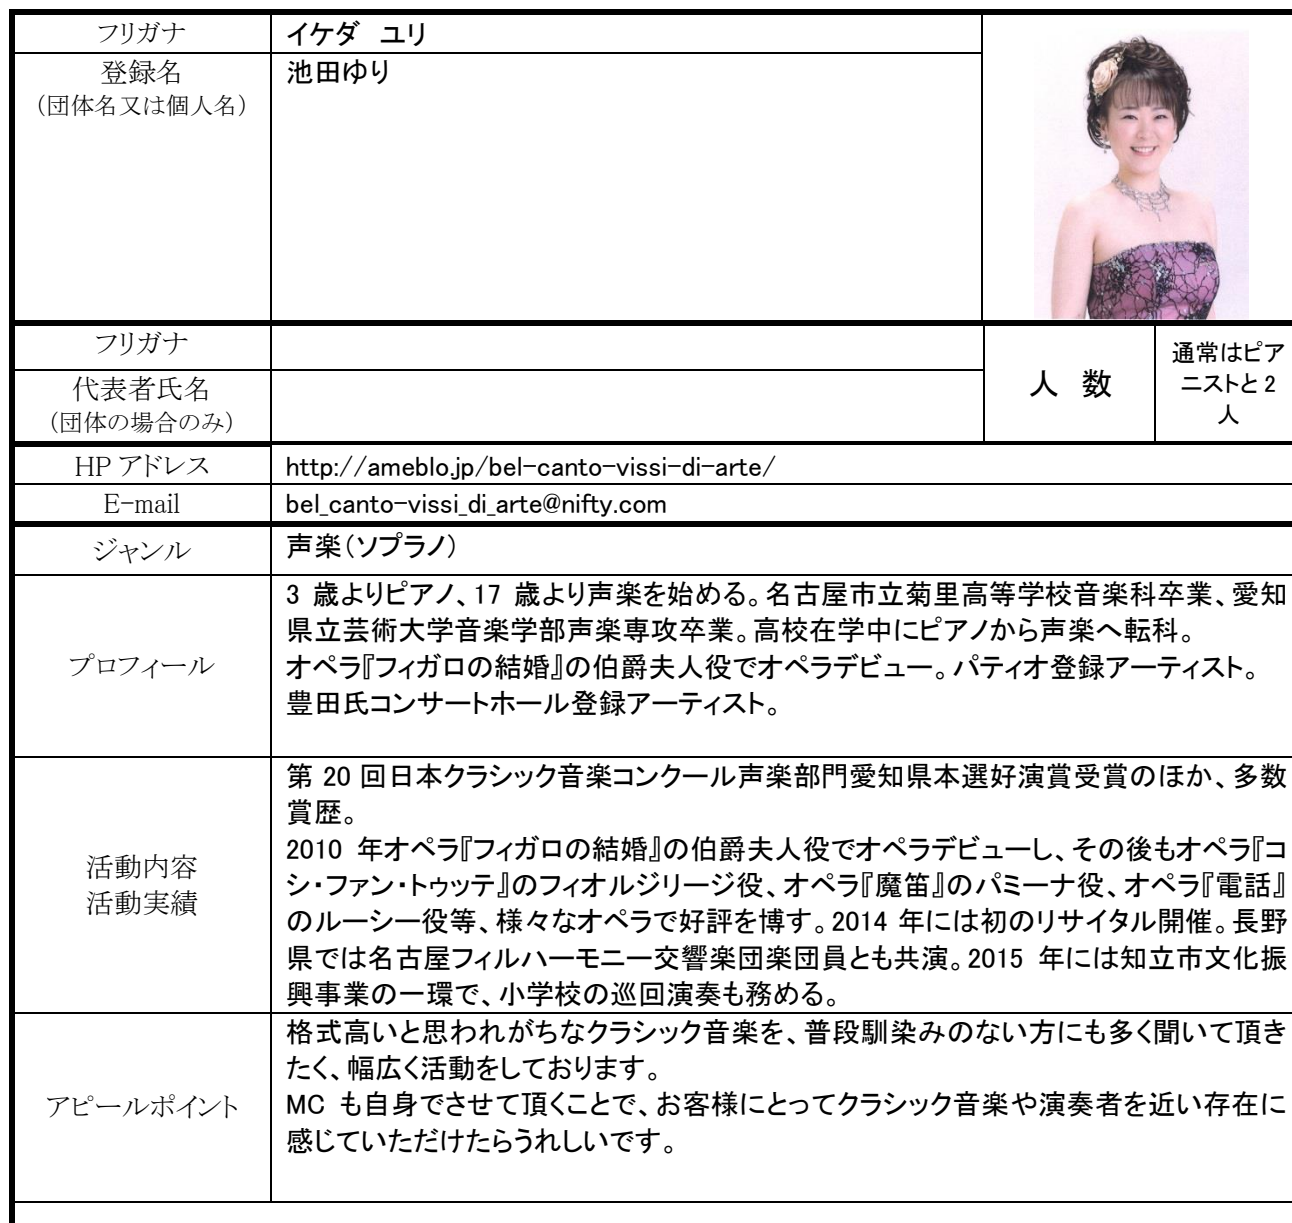 フリガナ
イケダ　ユリ
登録名
（団体名又は個人名）
池田ゆり
フリガナ
代表者氏名
（団体の場合のみ）
人 数
通常はピア
ニストと 2
人
HP アドレス
http://ameblo.jp/bel-canto-vissi-di-arte/
E-mail
bel_canto-vissi_di_arte@nifty.com
ジャンル
声楽（ソプラノ）
プロフィール
3 歳よりピアノ、17 歳より声楽を始める。名古屋市立菊里高等学校音楽科卒業、愛知
県立芸術大学音楽学部声楽専攻卒業。高校在学中にピアノから声楽へ転科。
オペラ『フィガロの結婚』の伯爵夫人役でオペラデビュー。パティオ登録アーティスト。
豊田氏コンサートホール登録アーティスト。
活動内容
活動実績
第 20 回日本クラシック音楽コンクール声楽部門愛知県本選好演賞受賞のほか、多数
賞歴。
2010 年オペラ『フィガロの結婚』の伯爵夫人役でオペラデビューし、その後もオペラ『コ
シ・ファン・トゥッテ』のフィオルジリージ役、オペラ『魔笛』のパミーナ役、オペラ『電話』
のルーシー役等、様々なオペラで好評を博す。2014 年には初のリサイタル開催。長野
県では名古屋フィルハーモニー交響楽団楽団員とも共演。2015 年には知立市文化振
興事業の一環で、小学校の巡回演奏も務める。
アピールポイント
格式高いと思われがちなクラシック音楽を、普段馴染みのない方にも多く聞いて頂き
たく、幅広く活動をしております。
MC も自身でさせて頂くことで、お客様にとってクラシック音楽や演奏者を近い存在に
感じていただけたらうれしいです。